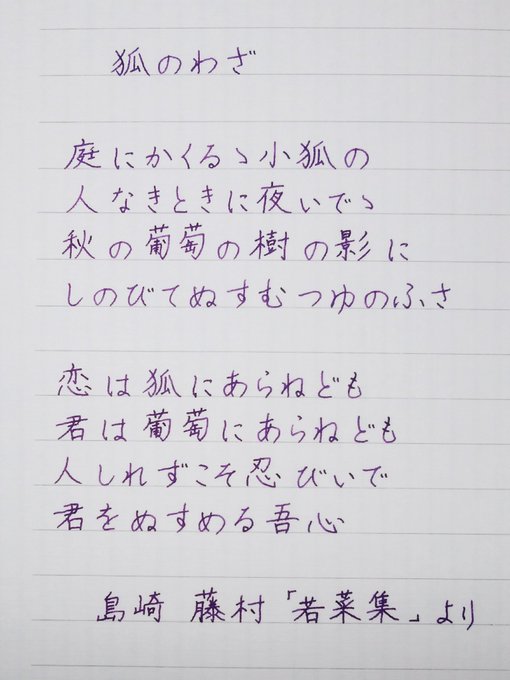 狐のわざ
庭にかくるゝ小狐の
人なきときに夜いでゝ
秋の葡萄の樹の影に
しのびてぬすむつゆのふさ
恋は狐にあらねども
君は葡萄にあらねども
人しれずこそ忍びいで
君をぬすめる吾心
島崎 藤村「若菜集」より